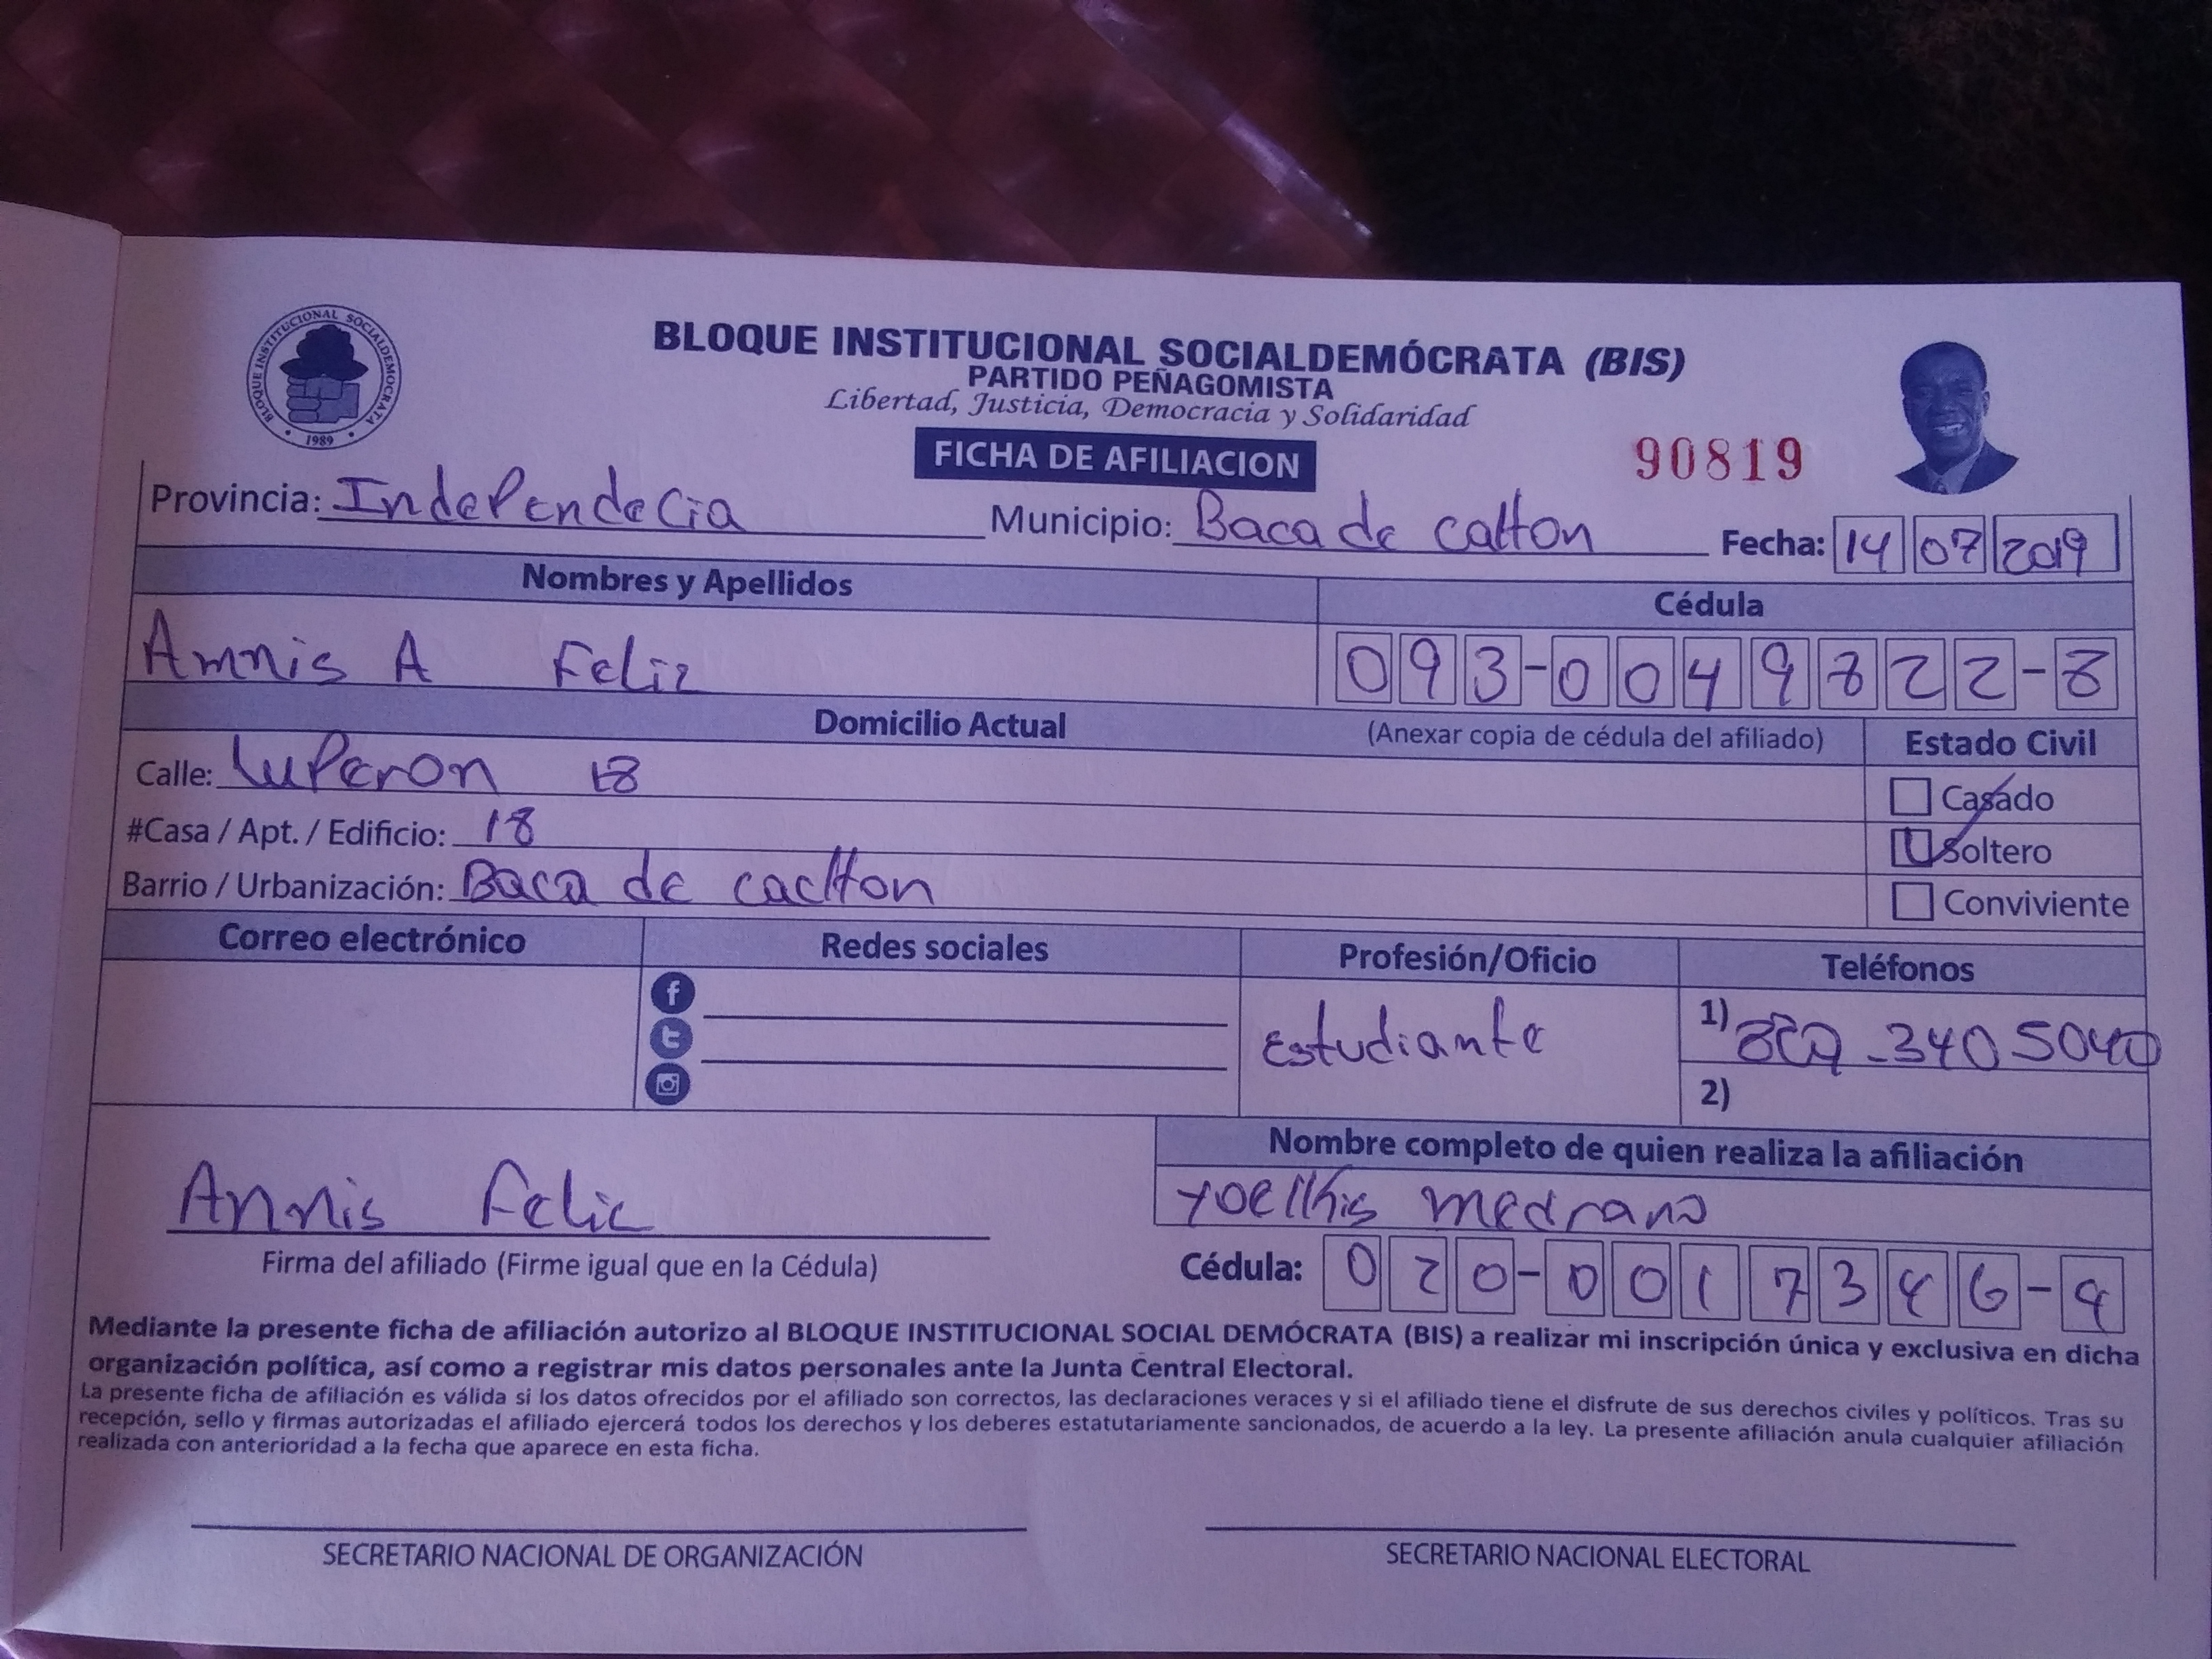 BLOQUE INSTITUCIONAL SOCIALDEMOCRATA
1989
BLOQUE INSTITUCIONAL SOCIALDEMÓCRATA (BIS)
PARTIDO PEÑAGOMISTA
Libertad, Justicia, Democracia y Solidaridad
FICHA DE AFILIACION
90819
Provincia: IndePendeCia Municipio: Baca de calton Fecha: 14 07 2019
Nombres y Apellidos Cédula
Amnis A Feliz 093-0049822-8
Domicilio Actual (Anexar copia de cédula del afiliado) Estado Civil
Calle: luPeron 18
Casado
#Casa / Apt. / Edificio: 18
Soltero
Barrio / Urbanización: Baca de caclton
Conviviente
Correo electrónico Redes sociales Profesión/Oficio Teléfonos
Estudiante
1) 829-340 5040
2)
Nombre completo de quien realiza la afiliación
Annis Feliz
yoelkis medrano
Firma del afiliado (Firme igual que en la Cédula)
Cédula: 020-0017346-9
Mediante la presente ficha de afiliación autorizo al BLOQUE INSTITUCIONAL SOCIAL DEMÓCRATA (BIS) a realizar mi inscripción única y exclusiva en dicha
organización política, así como a registrar mis datos personales ante la Junta Central Electoral.
La presente ficha de afiliación es válida si los datos ofrecidos por el afiliado son correctos, las declaraciones veraces y si el afiliado tiene el disfrute de sus derechos civiles y políticos. Tras su
recepción, sello y firmas autorizadas el afiliado ejercerá todos los derechos y los deberes estatutariamente sancionados, de acuerdo a la ley. La presente afiliación anula cualquier afiliación
realizada con anterioridad a la fecha que aparece en esta ficha.
SECRETARIO NACIONAL DE ORGANIZACIÓN SECRETARIO NACIONAL ELECTORAL